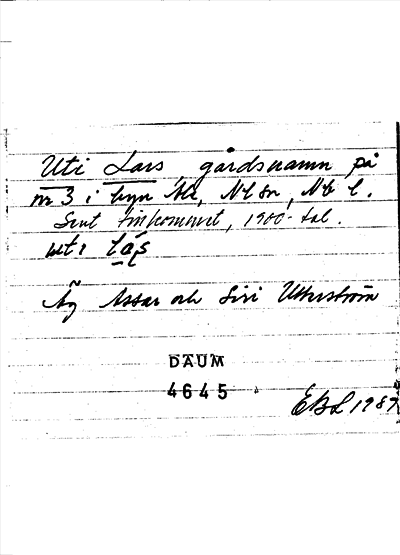 Uti Lars gårdsnamn på
nr 3 i byn Ål, Nbsn, Nb l.
Sent tillkommet, 1900-tal.
uti la̱ṣ
Äg Assar och Siri Utterström
DAUM
4645
EBL 1989